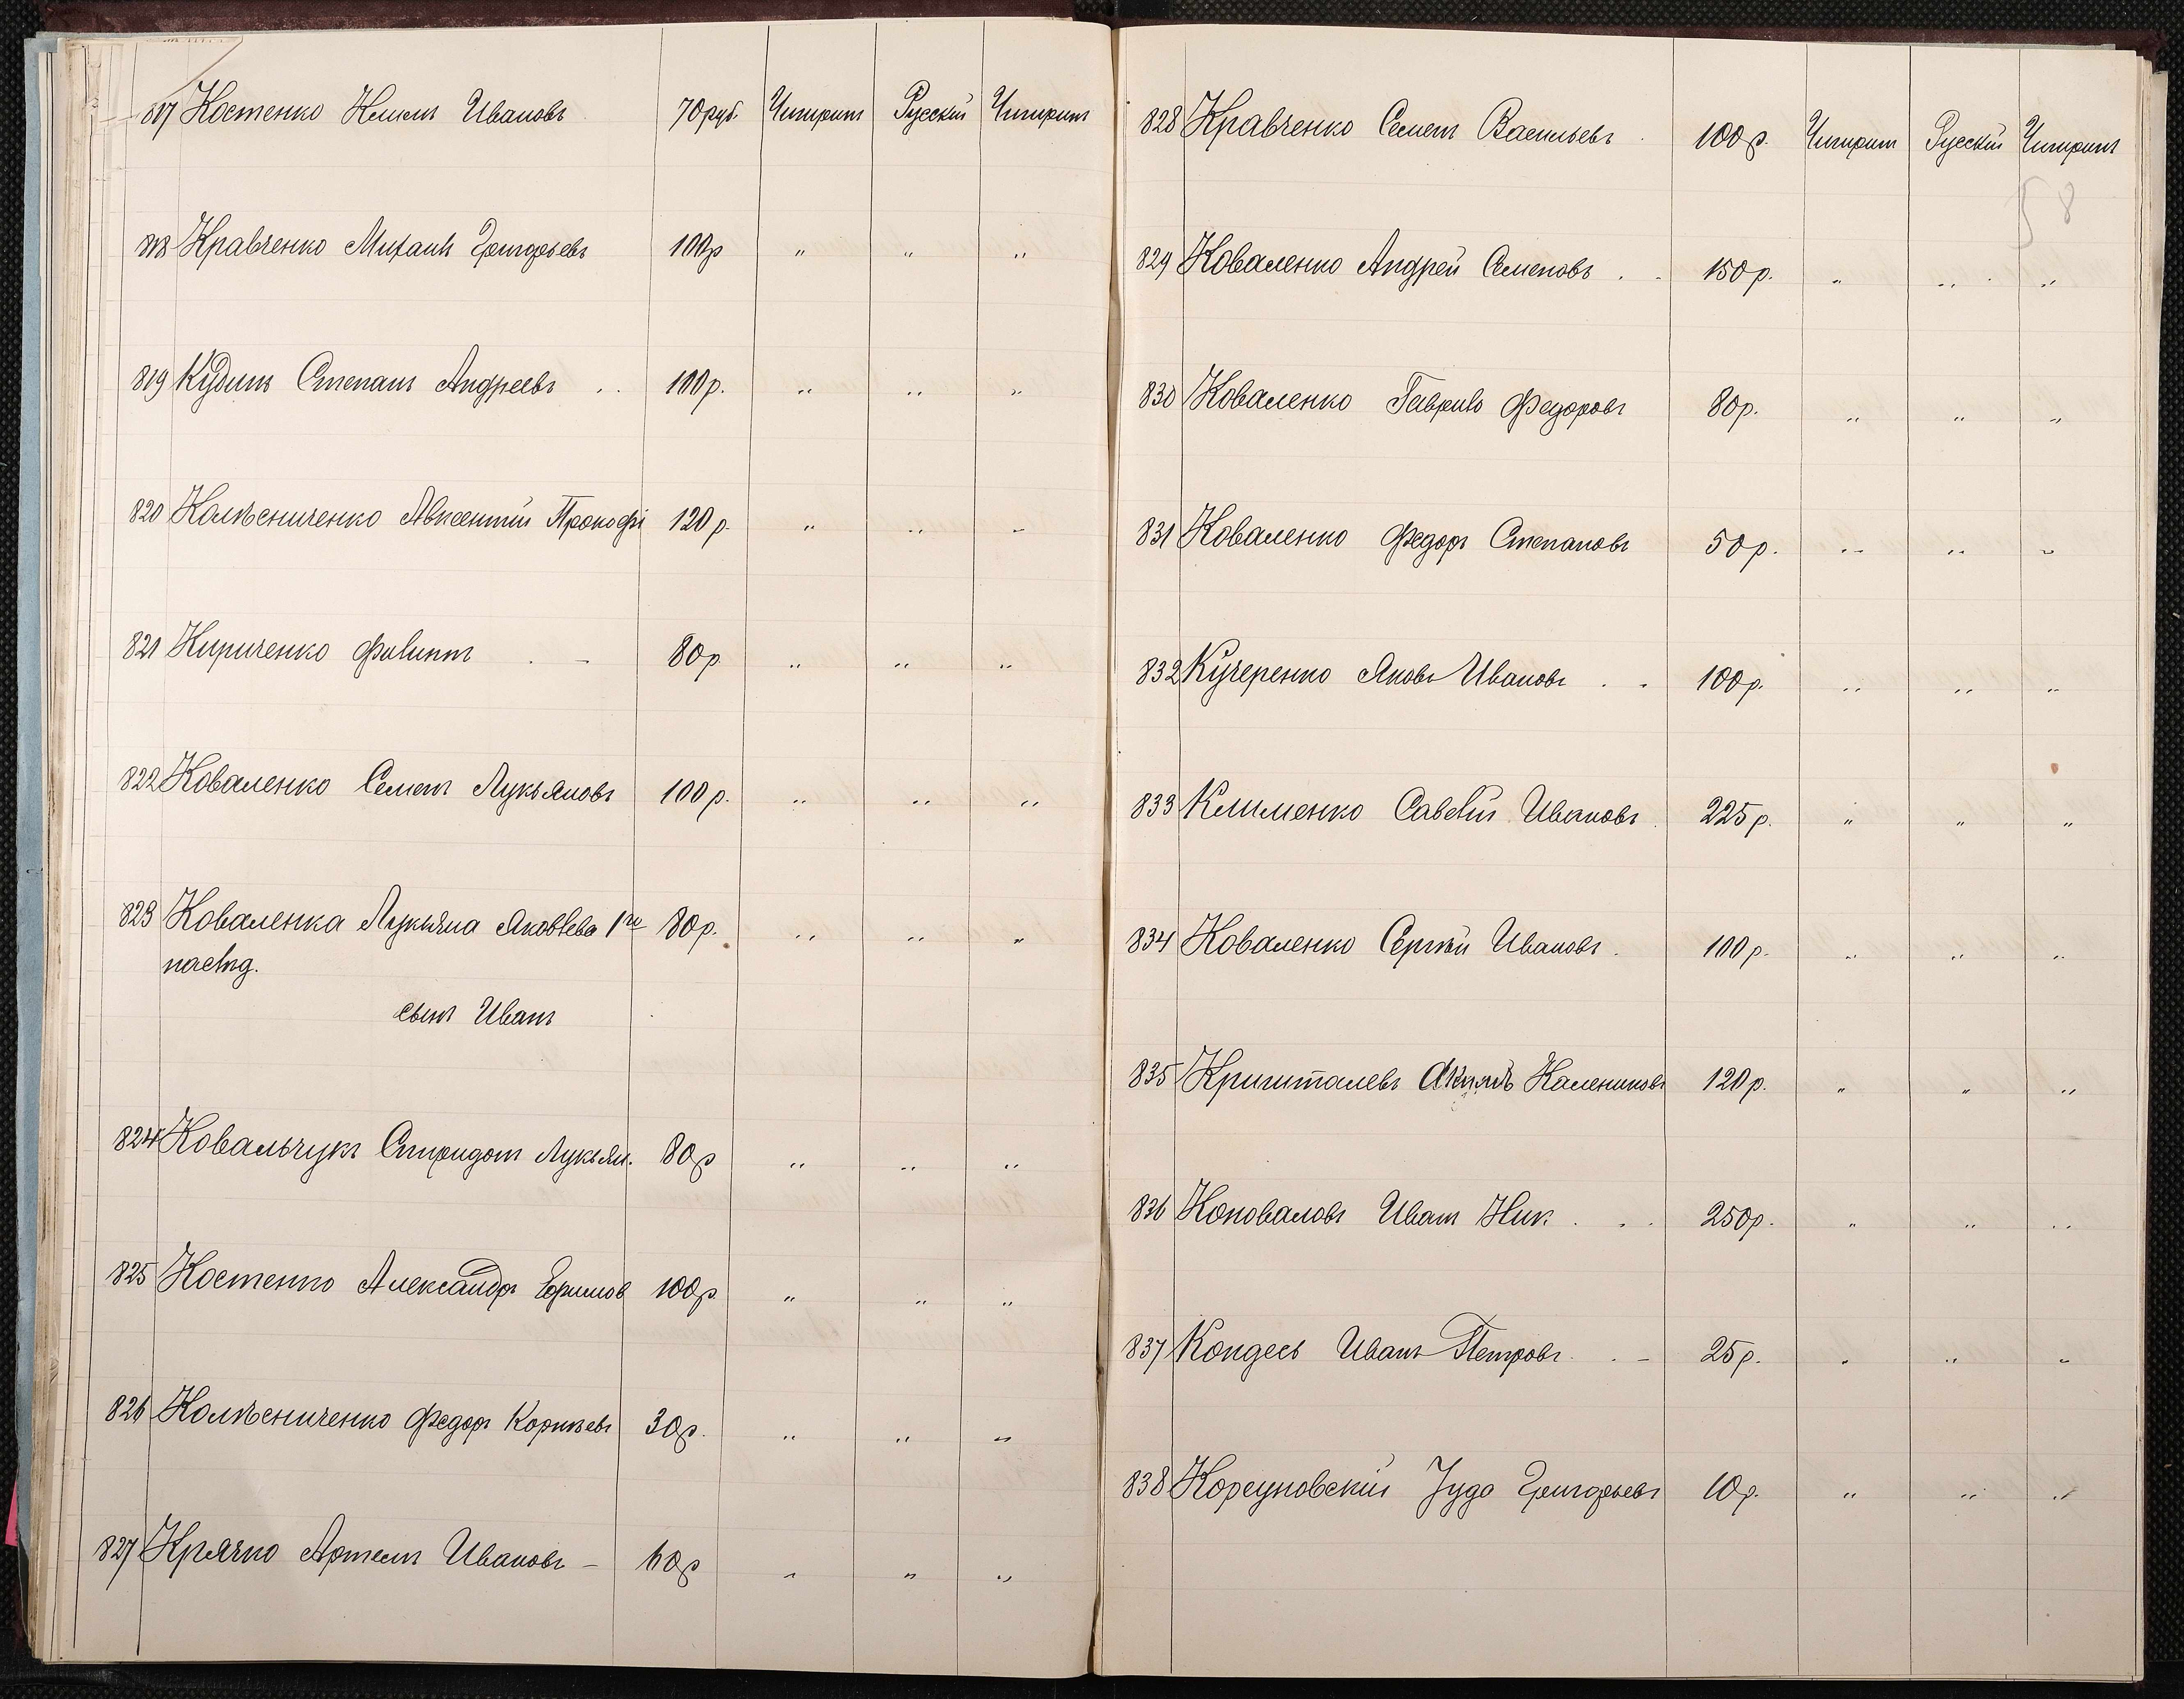 817 Костенко Иванъ 70 руб. Чигирин Русскій Чигирин
818 Кравченко Михаилъ Григорьевъ 100р " " "
819 Кудинъ Степанъ Андреевъ . . 100р. " " "
820 Колѣсниченко Авксентій Прокофі 120 р. " " "
821 Кириченко Филиппъ . - 80р " " "
822 Коваленко Семенъ Лукьяновъ 100 р. " " "
823 Коваленка Лукьяна Яковлева 1го 80р. " " "
наслѣд.
сынъ Иванъ
824 Ковальчукъ Спиридонъ Лукьян. 80р " " "
825 Костенко Александръ Ефимов 100р " " "
826 Колѣсниченко Федоръ Корнѣевъ 30р. " " "
827 Крячко Артемъ Ивановъ - 60р " " "
828 Кравченко Семенъ Васильевъ . 100р. Чигирин Русскій Чигирин
58
829 Коваленко Андрей Семеновъ . . 150р. " " "
830 Коваленко Гаврило Федоровъ 80р. " " "
831 Коваленко Федоръ Степановъ 50р. " " "
832 Кучеренко Яковъ Ивановъ . . 100р. " " "
833 Клименко Савелій Ивановъ . 225р. " " "
834 Коваленко Сергѣй Ивановъ . 100р. " " "
835 Кришталевъ Калениковъ 120р. " " "
836 Коноваловъ Иванъ Ник . . . 250р. " " "
837 Кондесь Иванъ Петровъ . . - 25р. " " "
838 Корсуновскій Іуда Григорьевъ 10р. " " "